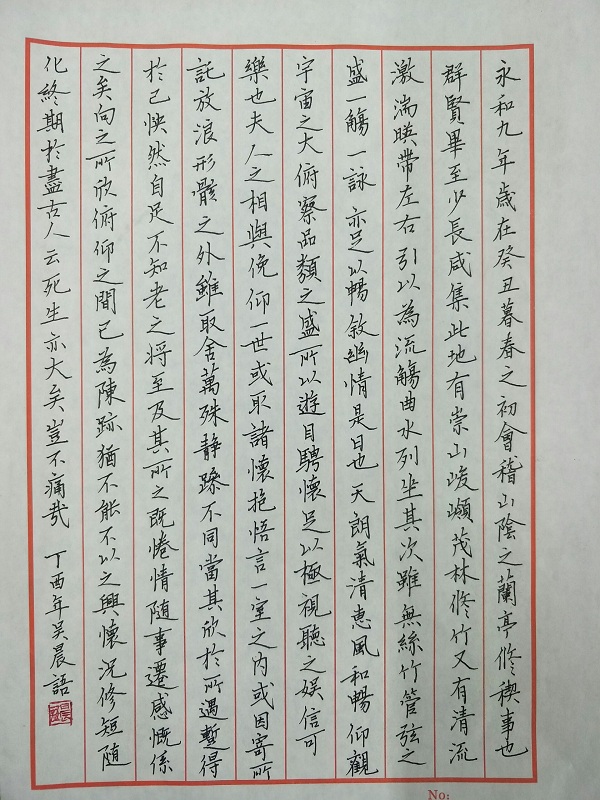 永和九年歲在癸丑暮春之初會稽山陰之蘭亭修稧事也
群賢畢至少長咸集此地有崇山峻嶺茂林修竹又有清流
激湍暎帶左右引以為流觴曲水列坐其次雖無絲竹管弦之
盛一觴一詠亦足以暢敘幽情是日也天朗氣清惠風和暢仰觀
宇宙之大俯察品類之盛所以遊目騁懷足以極視聽之娛信可
樂也夫人之相與俛仰一世或取諸懷抱悟言一室之內或因寄所
託放浪形骸之外雖取舍萬殊靜躁不同當其欣於所遇蹔得
於己怏然自足不知老之將至及其所之既惓情隨事遷感慨係
之矣向之所欣俯仰之間已為陳跡猶不能不以之興懷況修短隨
化終期於盡古人云死生亦大矣豈不痛哉 丁酉年吳晨語
No: